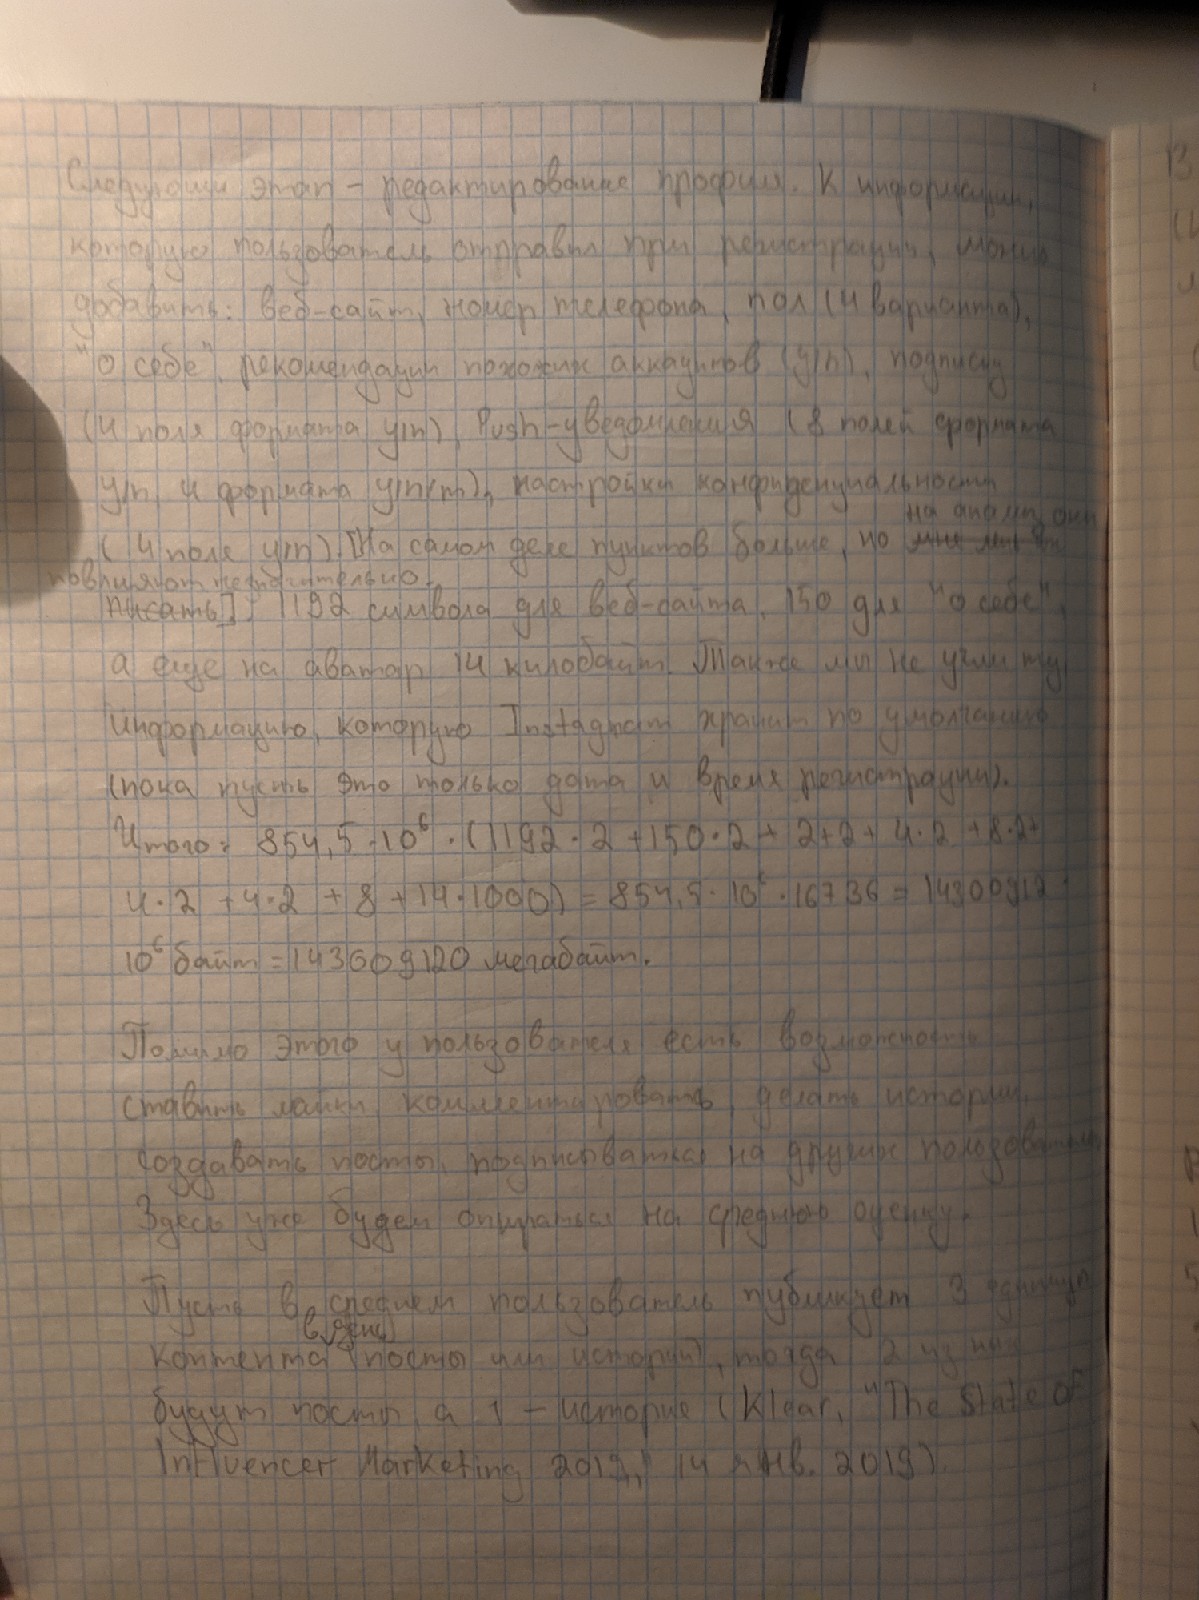 Следующий этап - редактирование профиля. К информации,
которую пользователь отправил при регистрации, можно
добавить: веб-сайт, номер телефона, пол (4 варианта),
"о себе", рекомендации похожих аккаунтов (y/n), подписку
(4 поля формата y/n), Push-уведомления (8 полей формата
y/n, 4 формата y/n/m), настройки конфиденциальности
на анализ они
(4 поле y/n). [На самом деле пунктов больше, но
повлияют незначительно.
писать]. 1192 символа для веб-сайта, 150 для "о себе",
а еще на аватар 14 килобайт. Также мы не учли ту
информацию, которую Instagram хранит по умолчанию
(пока пусть это только дата и время регистрации).
Итого: 854,5·10⁶·(1192·2+150·2+2+2+4·2+8·2+
4·2+4·2+8+14·1000)=854,5·10⁶·16736=14300912·
10⁶ байт=143009120 мегабайт.
Помимо этого у пользователя есть возможность
ставить лайки, комментировать, делать истории,
создавать посты, подписываться на других пользователей.
Здесь уже будем опираться на среднюю оценку.
Пусть в среднем пользователь публикует 3 единицы
в день
контента (посты или истории), тогда 2 из них
будут посты, а 1 - история (Klear, "The State of
Influencer Marketing 2019," 14 янв. 2019).